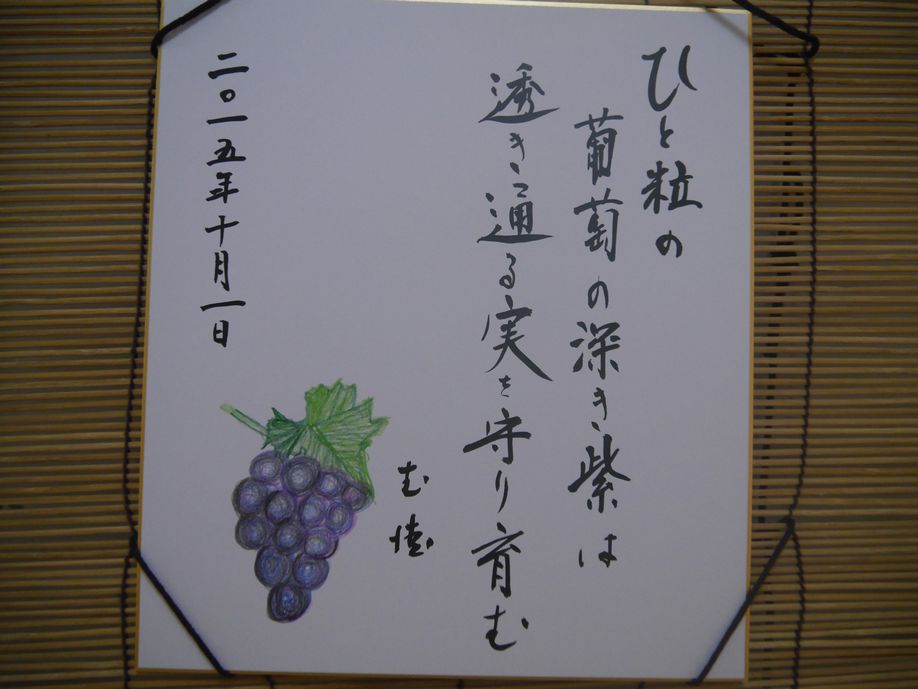 ひと粒の
葡萄の深き紫は
透き通る実を守り育む
む憶
二〇一五年十月一日